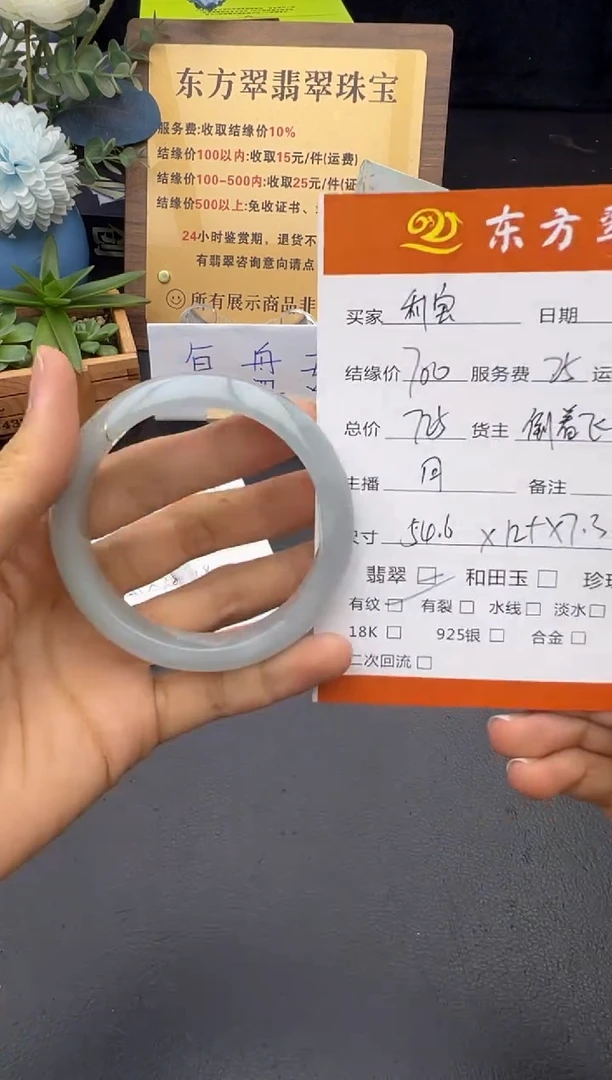 东方翠翡翠珠宝
服务费:收取结缘价10%
结缘价100以内:收取15元/件(运费)
结缘价100-500内:收取25元/件(证
结缘价500以上:免收证书、
24小时鉴赏期，退货不
有翡翠咨询意向请点
所有展示商品非
东方
买家 利宝 日期
结缘价 700 服务费 25 运
总价 725 货主 倒着飞
主播 日 备注
尺寸 54.6 × 12+ × 7.3
翡翠 和田玉 珍珠
有纹 有裂 水线 淡水
18K 925银 合金
二次回流